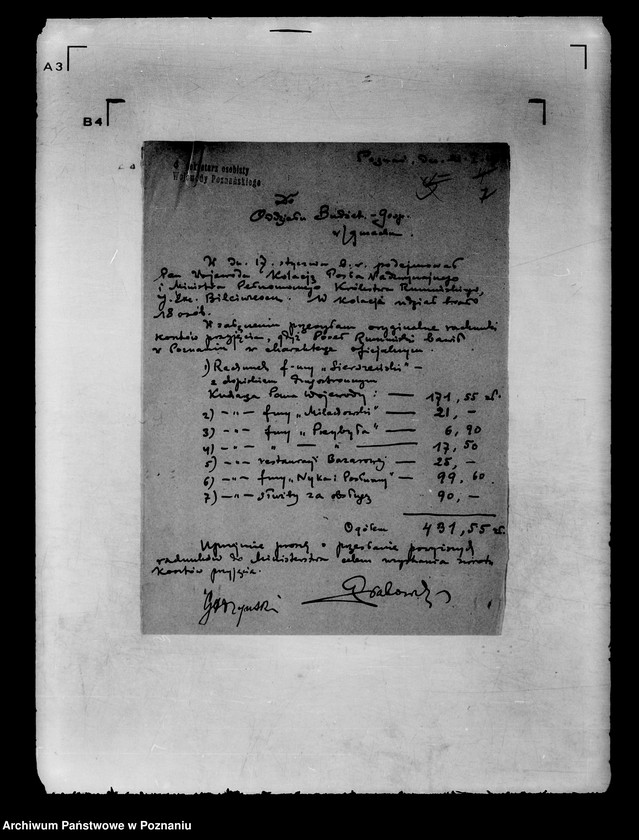 A3
B4
Sekretarz osobisty
Wojewody Poznańskiego
Poznań, dn.
Do
Oddziału Budżet.-Gosp.
w/gmachu.
W dn. 17. stycznia b.r. podejmował
Pan Wojewoda Kolacją Posła Nadzwyczajnego
i Ministra Pełnomocnego Królestwa Rumuńskiego,
W kolacji udział brało
18 osób.
W załączeniu przesyłam oryginalne rachunki
kosztów przyjęcia, gdyż Poseł Rumuński bawił
w Poznaniu w charakterze oficjalnym.
1) Rachunek f-my „Sierszeński" —
z dopiskiem
Kucharza Pana Wojewody : — 171,55 zł.
2) — „ — fmy „Miladowski" — 21,—
3) — „ — fmy „Przybyła" — 6,90
4) — „ — „ — „ — 17,50
5) — „ — restauracji Bazarowej — 25,—
6) — „ — fmy „Nyka i Posłuszny" — 99,60
7) — „ — służby za obsługę 90,—
Ogółem 431,55 zł.
Uprzejmie proszę o przesłanie powyższych
rachunków do Ministerstwa celem uzyskania zwrotu
kosztów przyjęcia.
Archiwum Państwowe w Poznaniu